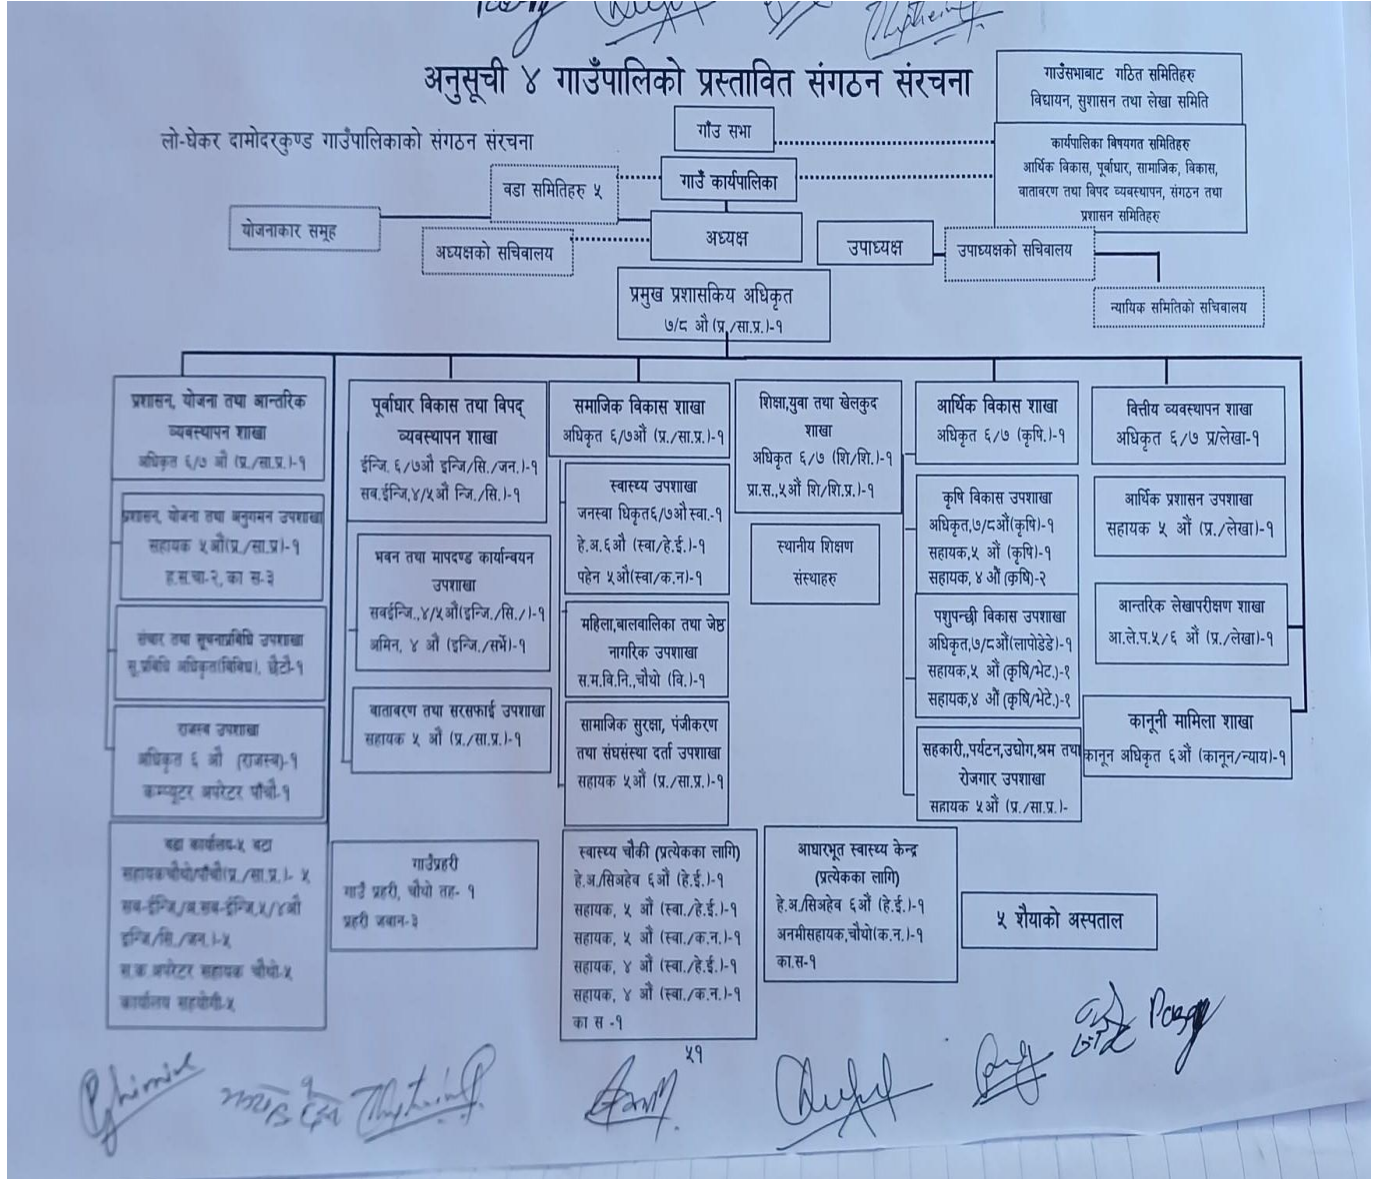 अनुसूची ४ गाउँपालिको प्रस्तावित संगठन संरचना
लो-घेकर दामोदरकुण्ड गाउँपालिकाको संगठन संरचना
गाउँसभाबाट गठित समितिहरु
विद्यायन, सुशासन तथा लेखा समिति
गाँउ सभा
कार्यपालिका बिषयगत समितिहरु
आर्थिक विकास, पूर्वाधार, सामाजिक, विकास,
वातावरण तथा विपद व्यवस्थापन, संगठन तथा
प्रशासन समितिहरु
गाउँ कार्यपालिका
वडा समितिहरु ५
योजनाकार समूह
अध्यक्ष
अध्यक्षको सचिवालय
उपाध्यक्ष
उपाध्यक्षको सचिवालय
न्यायिक समितिको सचिवालय
प्रमुख प्रशासकिय अधिकृत
७/८ औ (प्र./सा.प्र.)-१
प्रशासन, योजना तथा आन्तरिक
व्यवस्थापन शाखा
अधिकृत ६/७ औ (प्र./सा.प्र.)-१
प्रशासन, योजना तथा अनुगमन उपशाखा
सहायक ५औ(प्र./सा.प्र)-१
ह.स.चा-२, का स-३
संचार तथा सूचनाप्रबिधि उपशाखा
सू.प्रबिधि अधिकृत(बिबिध), छैटौ-१
राजस्ब उपशाखा
अधिकृत ६ औ (राजस्ब)-१
कम्प्यूटर अपरेटर पाँचौ-१
वडा कार्यालय-५ वटा
सहायकचौथो/पाँचौ(प्र./सा.प्र.)- ५
सब-ईन्जि/अ.सब-ईन्जि,५/४औ
इन्जि/सि./जन.)-५
स.क अपरेटर सहायक चौथो-५
कार्यालय सहयोगी-५
पूर्वाधार विकास तथा विपद्
व्यवस्थापन शाखा
ईन्जि. ६/७औ इन्जि/सि./जन.)-१
सब.ईन्जि,४/५औ न्जि./सि.)-१
भवन तथा मापदण्ड कार्यान्वयन
उपशाखा
सबईन्जि.,४/५औ(इन्जि./सि./)-१
अमिन, ४ औ (इन्जि./सर्भे)-१
वातावरण तथा सरसफाई उपशाखा
सहायक ५ औ (प्र./सा.प्र.)-१
गाउँप्रहरी
गाउँ प्रहरी, चौथो तह- १
प्रहरी जवान-३
समाजिक विकास शाखा
अधिकृत ६/७औं (प्र./सा.प्र.)-१
स्वास्थ्य उपशाखा
जनस्वा धिकृत६/७औ स्वा.-१
हे.अ.६औ (स्वा/हे.ई.)-१
पहेन ५औ(स्वा/क.न)-१
महिला,बालवालिका तथा जेष्ठ
नागरिक उपशाखा
स.म.वि.नि.,चौथो (वि.)-१
सामाजिक सुरक्षा, पंजीकरण
तथा संघसंस्था दर्ता उपशाखा
सहायक ५औं (प्र./सा.प्र.)-१
स्वास्थ्य चौकी (प्रत्येकका लागि)
हे.अ./सिअहेव ६औं (हे.ई.)-१
सहायक, ५ औं (स्वा./हे.ई.)-१
सहायक, ५ औं (स्वा./क.न.)-१
सहायक, ४ औं (स्वा./हे.ई.)-१
सहायक, ४ औं (स्वा./क.न.)-१
का स -१
शिक्षा,युवा तथा खेलकुद
शाखा
अधिकृत ६/७ (शि/शि.)-१
प्रा.स.,५औं शि/शि.प्र.)-१
स्थानीय शिक्षण
संस्थाहरु
आधारभूत स्वास्थ्य केन्द्र
(प्रत्येकका लागि)
हे.अ/सिअहेव ६औं (हे.ई.)-१
अनमीसहायक,चौथो(क.न.)-१
का.स-१
आर्थिक विकास शाखा
अधिकृत ६/७ (कृषि.)-१
कृषि विकास उपशाखा
अधिकृत,७/८औं(कृषि)-१
सहायक,५ औं (कृषि)-१
सहायक, ४ औं(कृषि)-२
पशुपन्छी विकास उपशाखा
अधिकृत,७/८औं(लापोडेडे)-१
सहायक,५ औं (कृषि/भेट.)-१
सहायक,४ औं (कृषि/भेटे.)-१
सहकारी,,पर्यटन,उद्योग,श्रम तथा
रोजगार उपशाखा
सहायक ५औं (प्र./सा.प्र.)-
५ शैयाको अस्पताल
वित्तीय व्यवस्थापन शाखा
अधिकृत ६/७ प्र/लेखा-१
आर्थिक प्रशासन उपशाखा
सहायक ५ औं (प्र./लेखा)-१
आन्तरिक लेखापरीक्षण शाखा
आ.ले.प.५/६ औं (प्र./लेखा)-१
कानूनी मामिला शाखा
कानून अधिकृत ६औं (कानून/न्याय)-१
५१